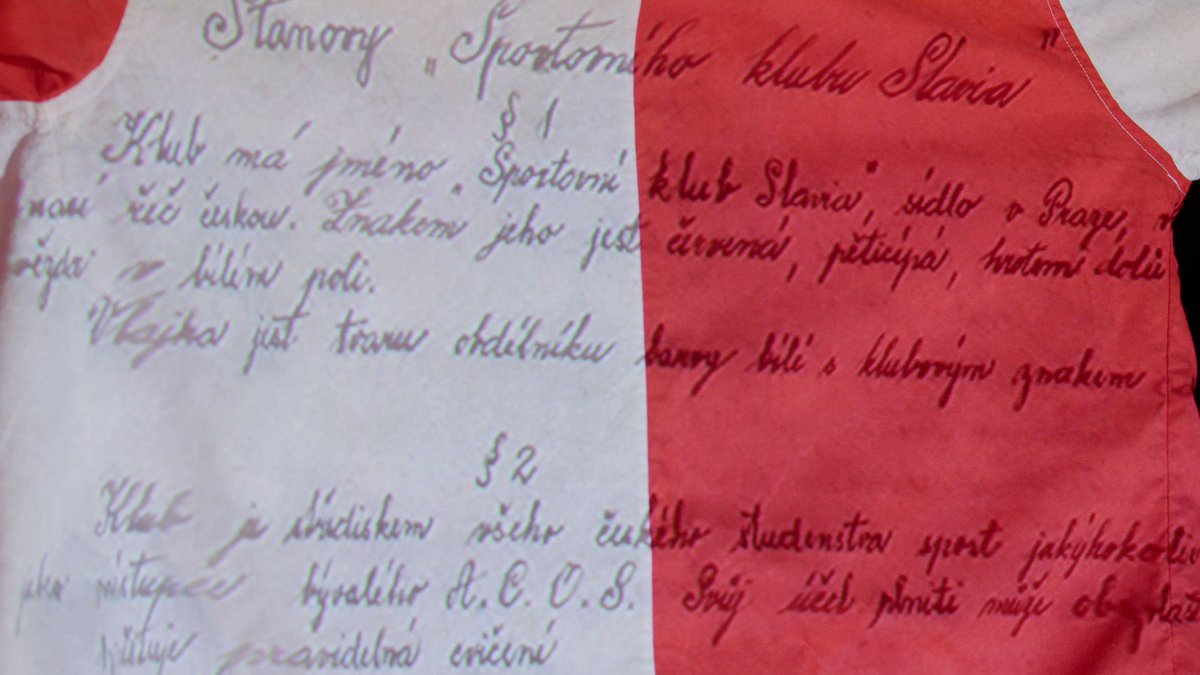 Stanovy „Sportovního klubu Slavia"
§ 1
Klub má jméno „Sportovní klub Slavia", sídlo v Praze,
řeč českou. Znakem jeho jest červená, pěticípá, hrotem dolů
v bílém poli.
Vlajka jest tvaru obdélníku barvy bílé s klubovým znakem
§ 2
Klub je střediskem všeho českého studenstva sport
bývalého A. C. O. S. Svůj účel plniti může
pravidelná cvičení